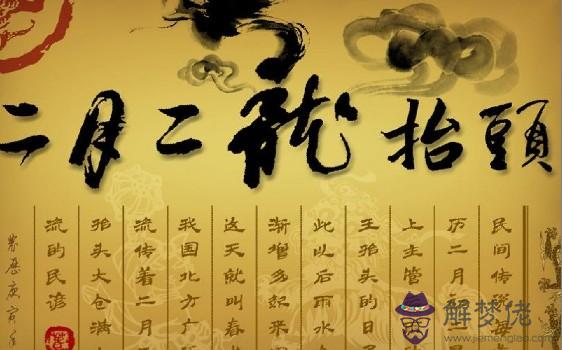 二月二龍抬頭
民间传说每
历二月
上主管
王抬头的日
此以后雨水
渐增多起来
这天就叫春
我国北方广
流传着二月
抬头大仓满
流的民谚
农历庚寅年
解梦佬
www.jiemenglao.com